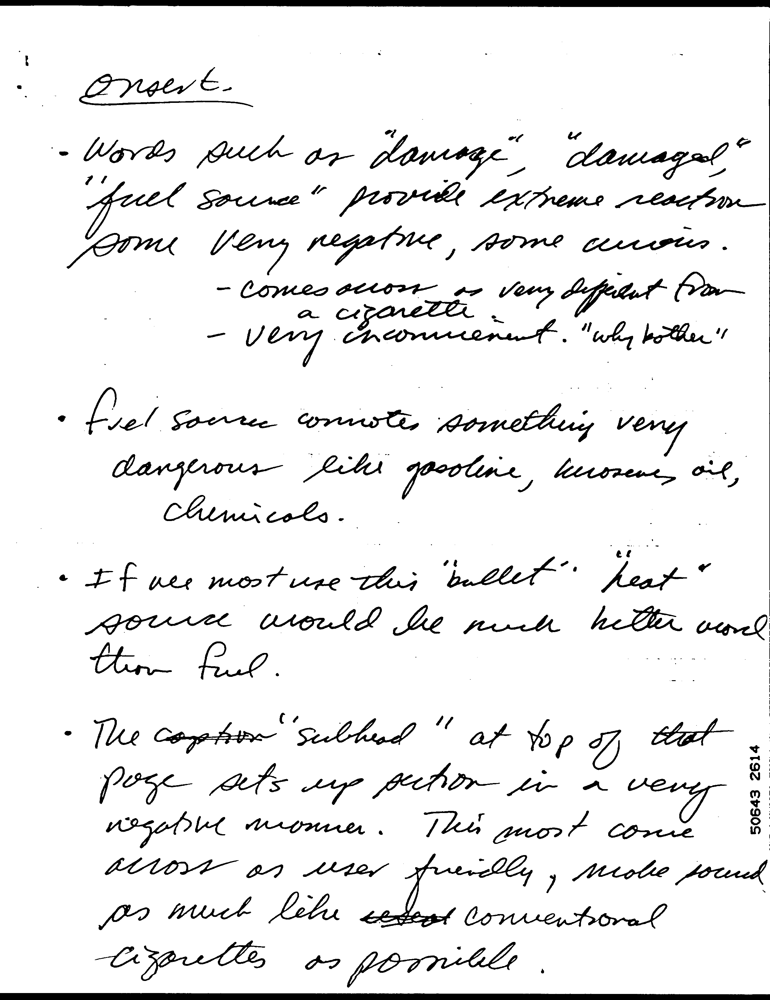 Onsert.
- Words such as "damage", "damaged,"
"fuel source" provide extreme reaction
some very negative, some curious.
- comes across as very different from
a cigarette.
- very inconvenient. "why bother"
• Fuel source connotes something very
dangerous like gasoline, kerosene, oil,
chemicals.
• If we most use this "bullet". "heat"
source would be much better word
than fuel.
• The caption "subhead" at top of that
page sets up section in a very
negative manner. This most come
across as user friendly, make sound
as much like conventional
cigarettes as possible.
50643 2614